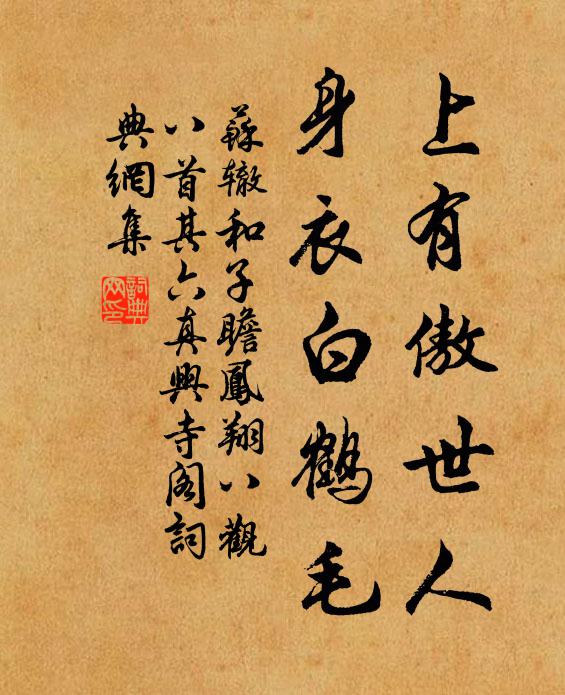 上有傲世人
身衣白鶴毛
蘇轍和子瞻鳳翔八觀
八首其六真興寺閣詞
典網集
詞典
网印